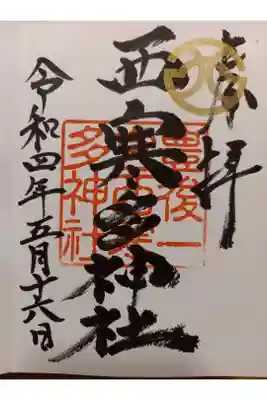 奉拝
西寒多神社
令和四年五月十六日
豊後一
多神社